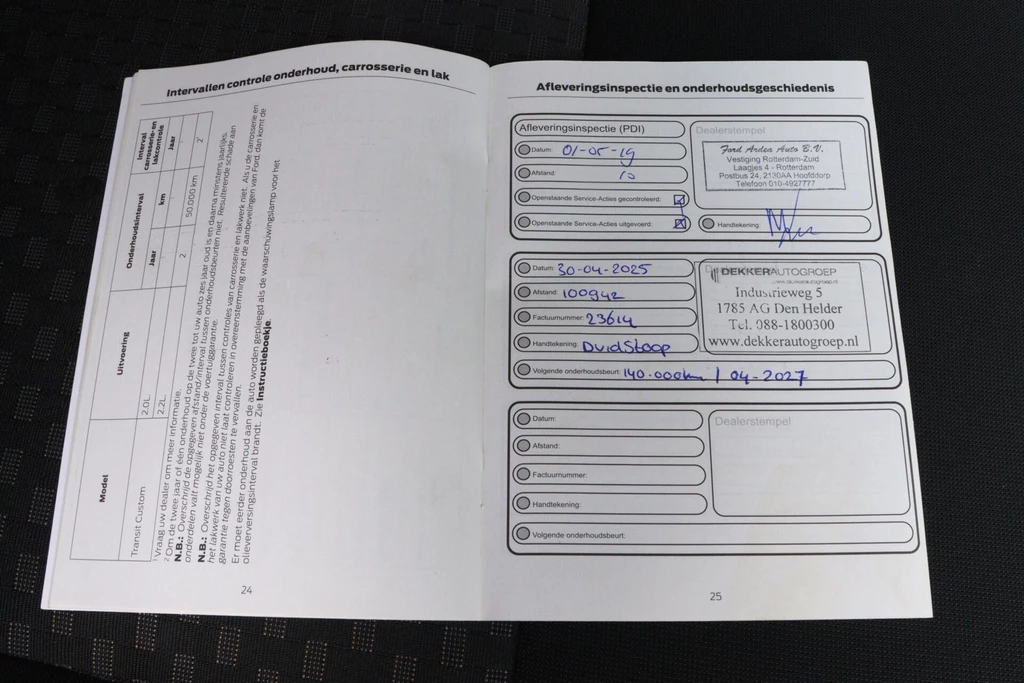 Intervallen controle onderhoud, carrosserie en lak
Model
Uitvoering
Onderhoudsinterval
Interval carrosserie- en lakcontrole
Jaar
km
Jaar
Transit Custom
2.0L
2
50.000 km
2
2.2L
1
¹ Vraag uw dealer om meer informatie.
² Om de twee jaar of één onderhoud op de twee tot uw auto zes jaar oud is en daarna minstens jaarlijks.
N.B.: Overschrijd de opgegeven afstand/interval tussen onderhoudsbeurten niet. Resulterende schade aan
onderdelen valt mogelijk niet onder de voertuiggarantie.
N.B.: Overschrijd het opgegeven interval tussen controles van carrosserie en lakwerk niet. Als u de carrosserie en
het lakwerk van uw auto niet laat controleren in overeenstemming met de aanbevelingen van Ford, dan komt de
garantie tegen doorroesten te vervallen.
Er moet eerder onderhoud aan de auto worden gepleegd als de waarschuwingslamp voor het
olieverversingsinterval brandt. Zie Instructieboekje.
24
Afleveringsinspectie en onderhoudsgeschiedenis
Afleveringsinspectie (PDI)
Datum: 01-05-19
Afstand: 10
Openstaande Service-Acties gecontroleerd:
Openstaande Service-Acties uitgevoerd:
Dealerstempel
Ford Arden Auto B.V.
Vestiging Rotterdam-Zuid
Laagjes 4 - Rotterdam
Postbus 24, 2130AA Hoofddorp
Telefoon 010-4927777
Handtekening:
Datum: 30-04-2025
Afstand: 100942
Factuurnummer: 23614
Handtekening: DvidStoop
Volgende onderhoudsbeurt: 140.000km / 04-2027
DEKKERAUTOGROEP
www.dekkerautogroep.nl
Industrieweg 5
1785 AG Den Helder
Tel. 088-1800300
www.dekkerautogroep.nl
Datum:
Afstand:
Factuurnummer:
Handtekening:
Volgende onderhoudsbeurt:
Dealerstempel
25